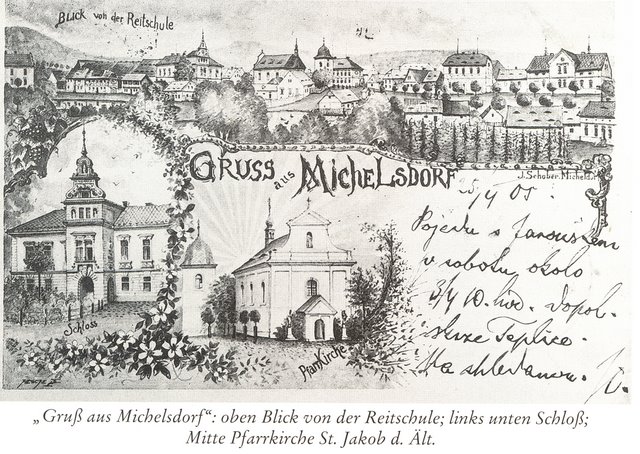 Blick von der Reitschule
GRUSS aus MICHELSDORF
J. Schober. Michelsd.
25/4 05.
Pojedu s Jaroušem
v sobotu okolo
3/4 10. hod. dopol.
skrze Teplice.
Na shledanou.
Schloss
Pfarrkirche
„Gruß aus Michelsdorf“: oben Blick von der Reitschule; links unten Schloß;
Mitte Pfarrkirche St. Jakob d. Ält.